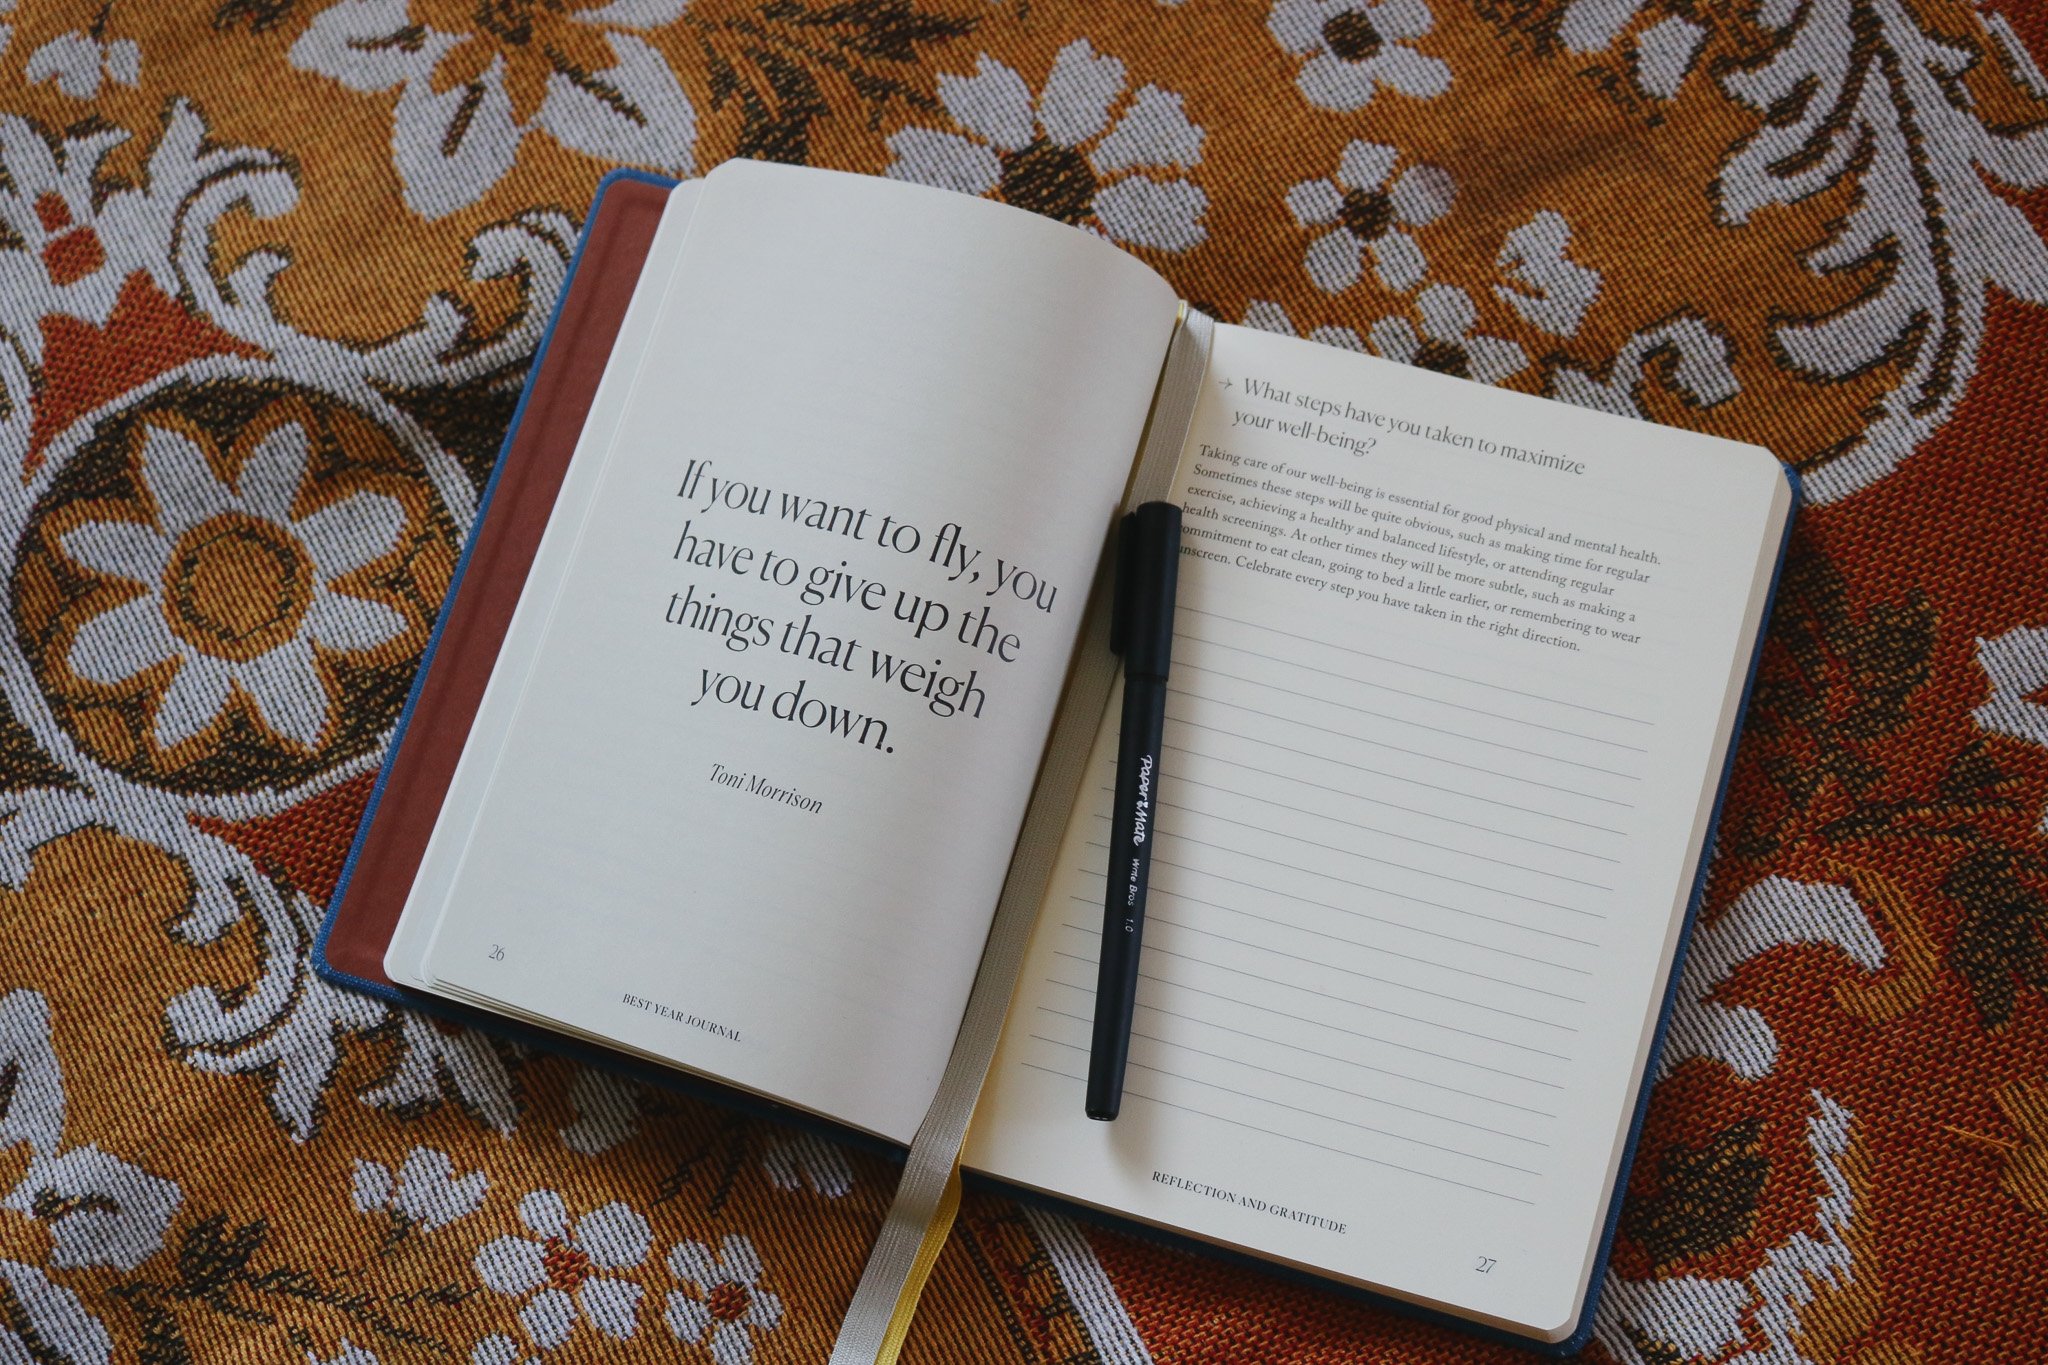 If you want to fly, you
have to give up the
things that weigh
you down.
Toni Morrison
26
BEST YEAR JOURNAL
→ What steps have you taken to maximize
your well-being?
Taking care of our well-being is essential for good physical and mental health.
Sometimes these steps will be quite obvious, such as making time for regular
exercise, achieving a healthy and balanced lifestyle, or attending regular
health screenings. At other times they will be more subtle, such as making a
ommitment to eat clean, going to bed a little earlier, or remembering to wear
unscreen. Celebrate every step you have taken in the right direction.
REFLECTION AND GRATITUDE
27
Paper Mate Write Bros 1.0